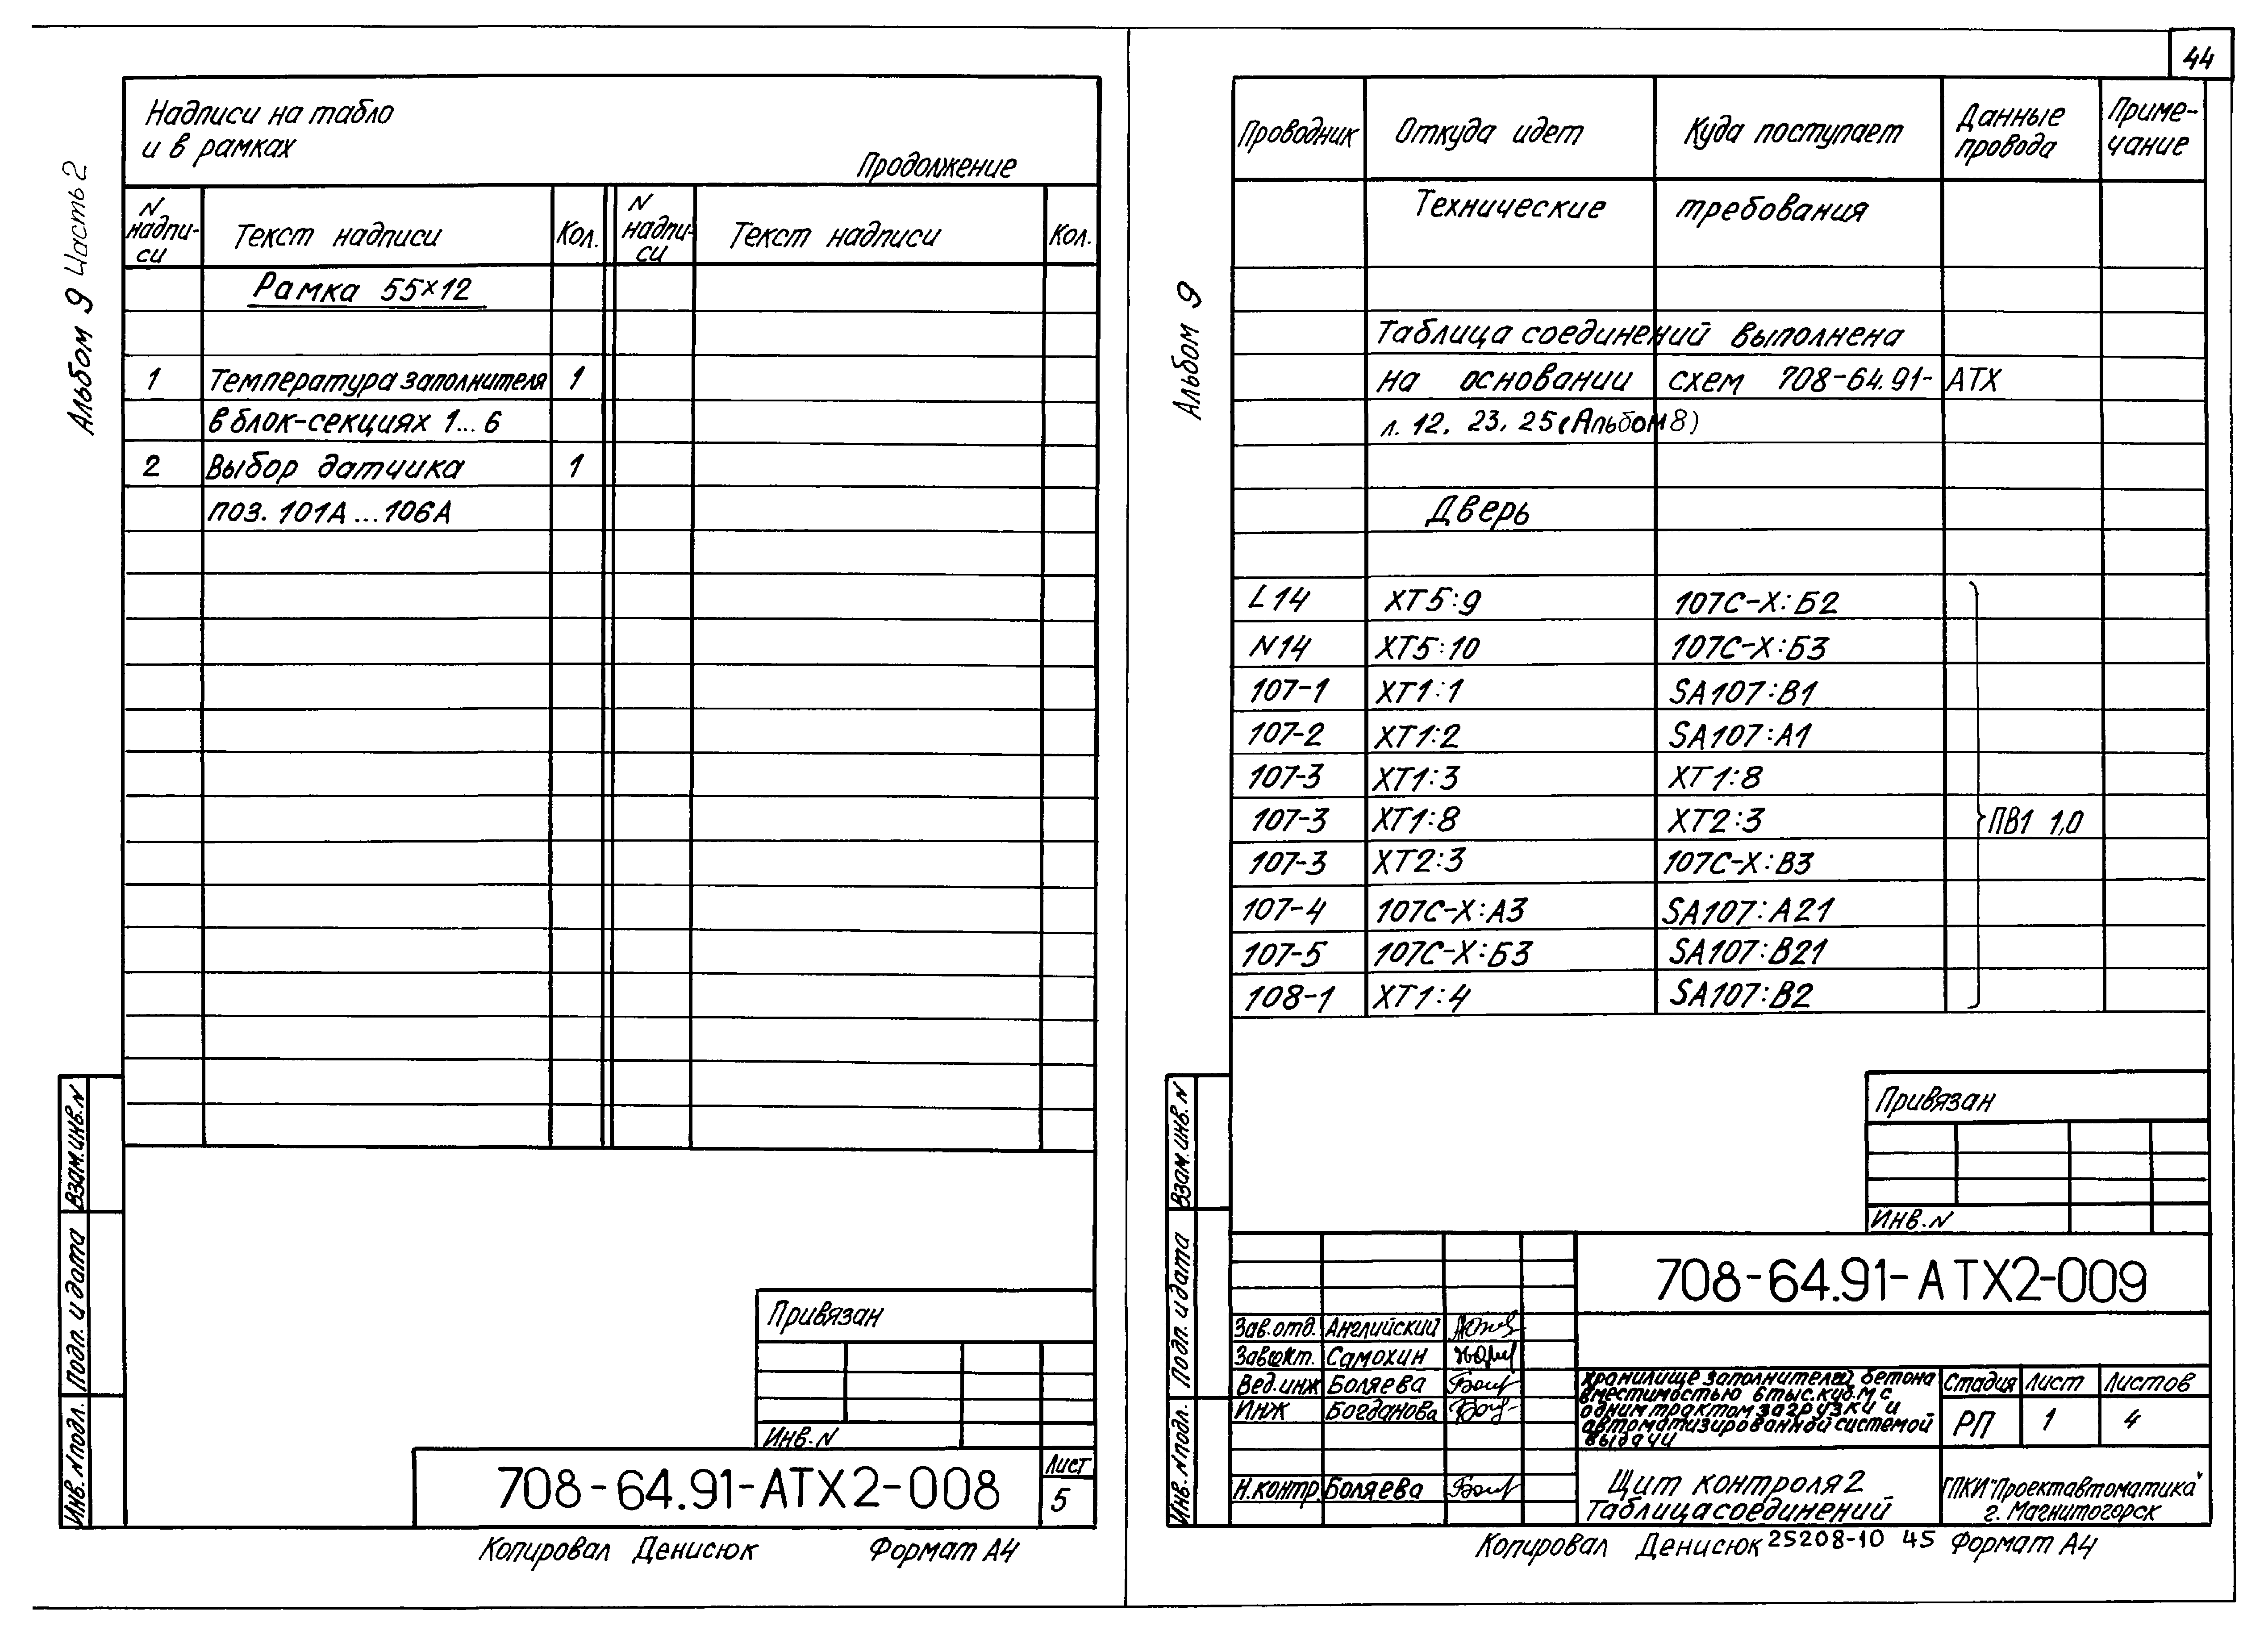 44
Альбом 9 Часть 2
Надписи на табло
и в рамках
Продолжение
N надпи-си Текст надписи Кол. N надпи-си Текст надписи Кол.
Рамка 55×12
1 Температура заполнителя 1
в блок-секциях 1...6
2 Выбор датчика 1
поз. 101А...106А
Привязан
Инв. N
708-64.91-АТХ2-008
Лист
5
Взам. инв. N
Подп. и дата
Инв. N подл.
Копировал Денисюк Формат А4
Альбом 9
Проводник Откуда идет Куда поступает Данные провода Приме-чание
Технические требования
Таблица соединений выполнена
на основании схем 708-64.91-АТХ
л. 12, 23, 25 (Альбом 8)
Дверь
L14 XT5:9 107С-Х:Б2
N14 XT5:10 107С-Х:Б3
107-1 XT1:1 SA107:В1
107-2 XT1:2 SA107:А1
107-3 XT1:3 XT1:8
107-3 XT1:8 XT2:3 ПВ1 1,0
107-3 XT2:3 107С-Х:В3
107-4 107С-Х:А3 SA107:А21
107-5 107С-Х:Б3 SA107:В21
108-1 XT1:4 SA107:В2
Привязан
Инв. N
708-64.91-АТХ2-009
Зав. отд. Английский
Самохин
Вед. инж Боляева
Инж Богданова
Н. контр. Боляева
хранилище заполнителей бетона
вместимостью 6 тыс. куб. м с
одним трактом загрузки и
автоматизированной системой
выдачи
Стадия Лист Листов
РП 1 4
Щит контроля 2
Таблица соединений
ГПКИ "Проектавтоматика"
г. Магнитогорск
Взам. инв. N
Подп. и дата
Инв. N подл.
Копировал Денисюк 25208-10 45 Формат А4